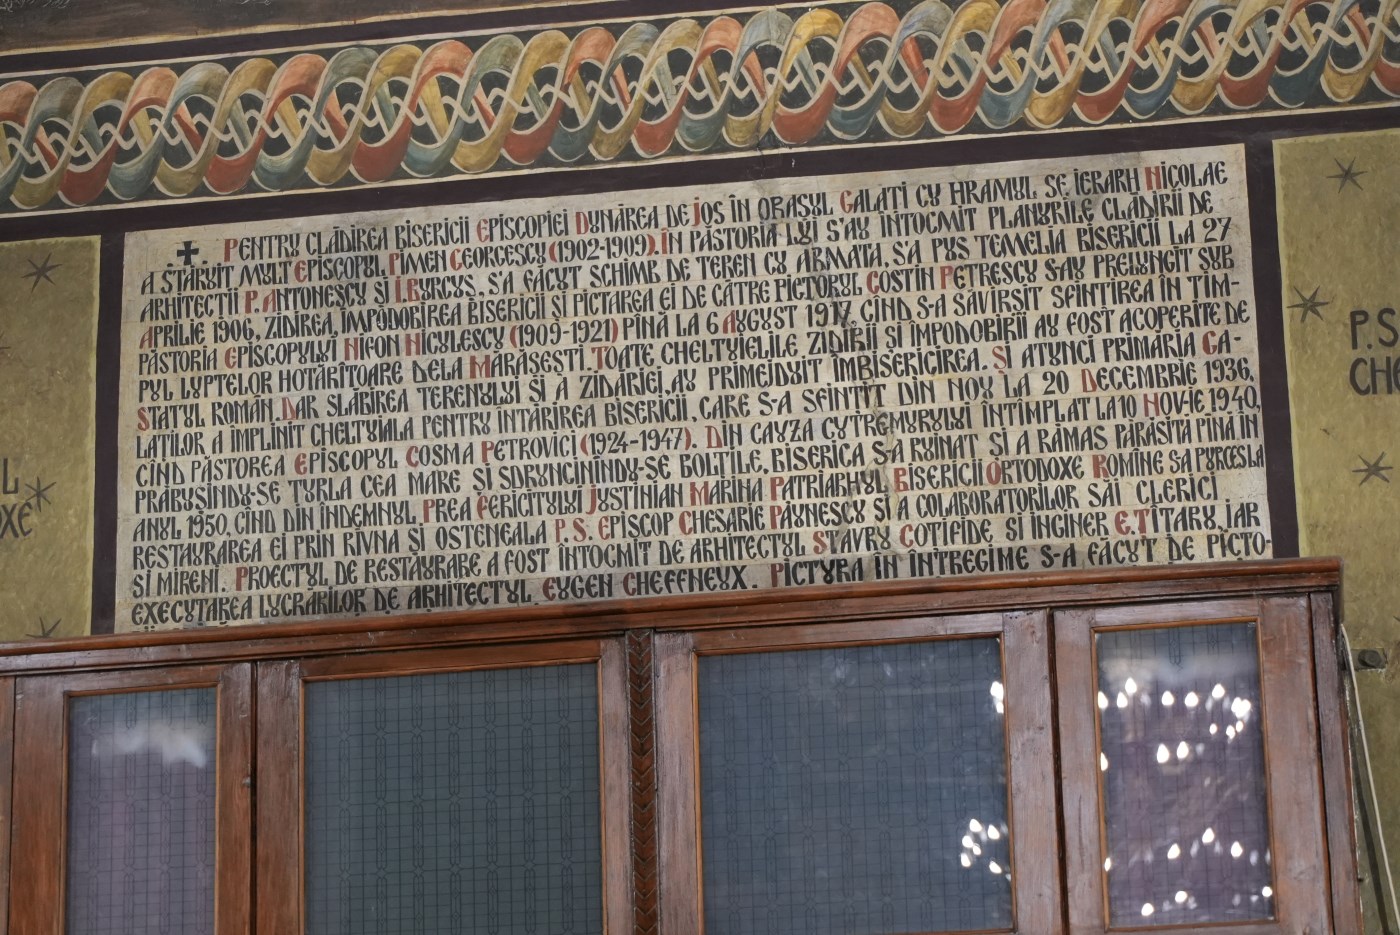 ✝ PENTRU CLĂDIREA BISERICII EPISCOPIEI DUNĂREA DE JOS ÎN ORAȘUL GALAȚI CU HRAMUL SF. IERARH NICOLAE
A STĂRUIT MULT EPISCOPUL PIMEN GEORGESCU (1902-1909). ÎN PĂSTORIA LUI S'AU ÎNTOCMIT PLANURILE CLĂDIRII DE
ARHITECȚII P. ANTONESCU ȘI I. BURCUȘ, S'A FĂCUT SCHIMB DE TEREN CU ARMATA, S'A PUS TEMELIA BISERICII LA 27
APRILIE 1906, ZIDIREA, ÎMPODOBIREA BISERICII ȘI PICTAREA EI DE CĂTRE PICTORUL COSTIN PETRESCU S'AU PRELUNGIT SUB
PĂSTORIA EPISCOPULUI NIFON NICULESCU (1909-1921) PÎNĂ LA 6 AUGUST 1917, CÎND S-A SĂVÎRȘIT SFINȚIREA ÎN TIM-
PUL LUPTELOR HOTĂRÎTOARE DELA MĂRĂȘEȘTI. TOATE CHELTUIELILE ZIDIRII ȘI ÎMPODOBIRII AU FOST ACOPERITE DE
STATUL ROMÂN. DAR SLĂBIREA TERENULUI ȘI A ZIDĂRIEI, AU PRIMEJDUIT ÎMBISERICIREA. ȘI ATUNCI PRIMĂRIA GA-
LAȚILOR A ÎMPLINIT CHELTUIALA PENTRU ÎNTĂRIREA BISERICII, CARE S-A SFINȚIT DIN NOU LA 20 DECEMBRIE 1936,
CÎND PĂSTOREA EPISCOPUL COSMA PETROVICI (1924-1947). DIN CAUZA CUTREMURULUI ÎNTÎMPLAT LA 10 NOV-IE 1940,
PRĂBUȘINDU-SE TURLA CEA MARE ȘI SDRUNCINÎNDU-SE BOLȚILE, BISERICA S-A RUINAT ȘI A RĂMAS PĂRĂSITĂ PÎNĂ ÎN
ANUL 1950, CÎND DIN ÎNDEMNUL PREA FERICITULUI JUSTINIAN MARINA PATRIARHUL BISERICII ORTODOXE ROMÎNE SA PURCES LA
RESTAURAREA EI PRIN RÎVNA ȘI OSTENEALA P.S. EPISCOP CHESARIE PĂUNESCU ȘI A COLABORATORILOR SĂI CLERICI
ȘI MIRENI. PROECTUL DE RESTAURARE A FOST ÎNTOCMIT DE ARHITECTUL STAVRU COTIFIDE ȘI INGINER E. TITARU, IAR
EXECUTAREA LUCRĂRILOR DE ARHITECTUL EUGEN CHEFFNEUX. PICTURA ÎN ÎNTREGIME S-A FĂCUT DE PICTO-
P.S
CHE